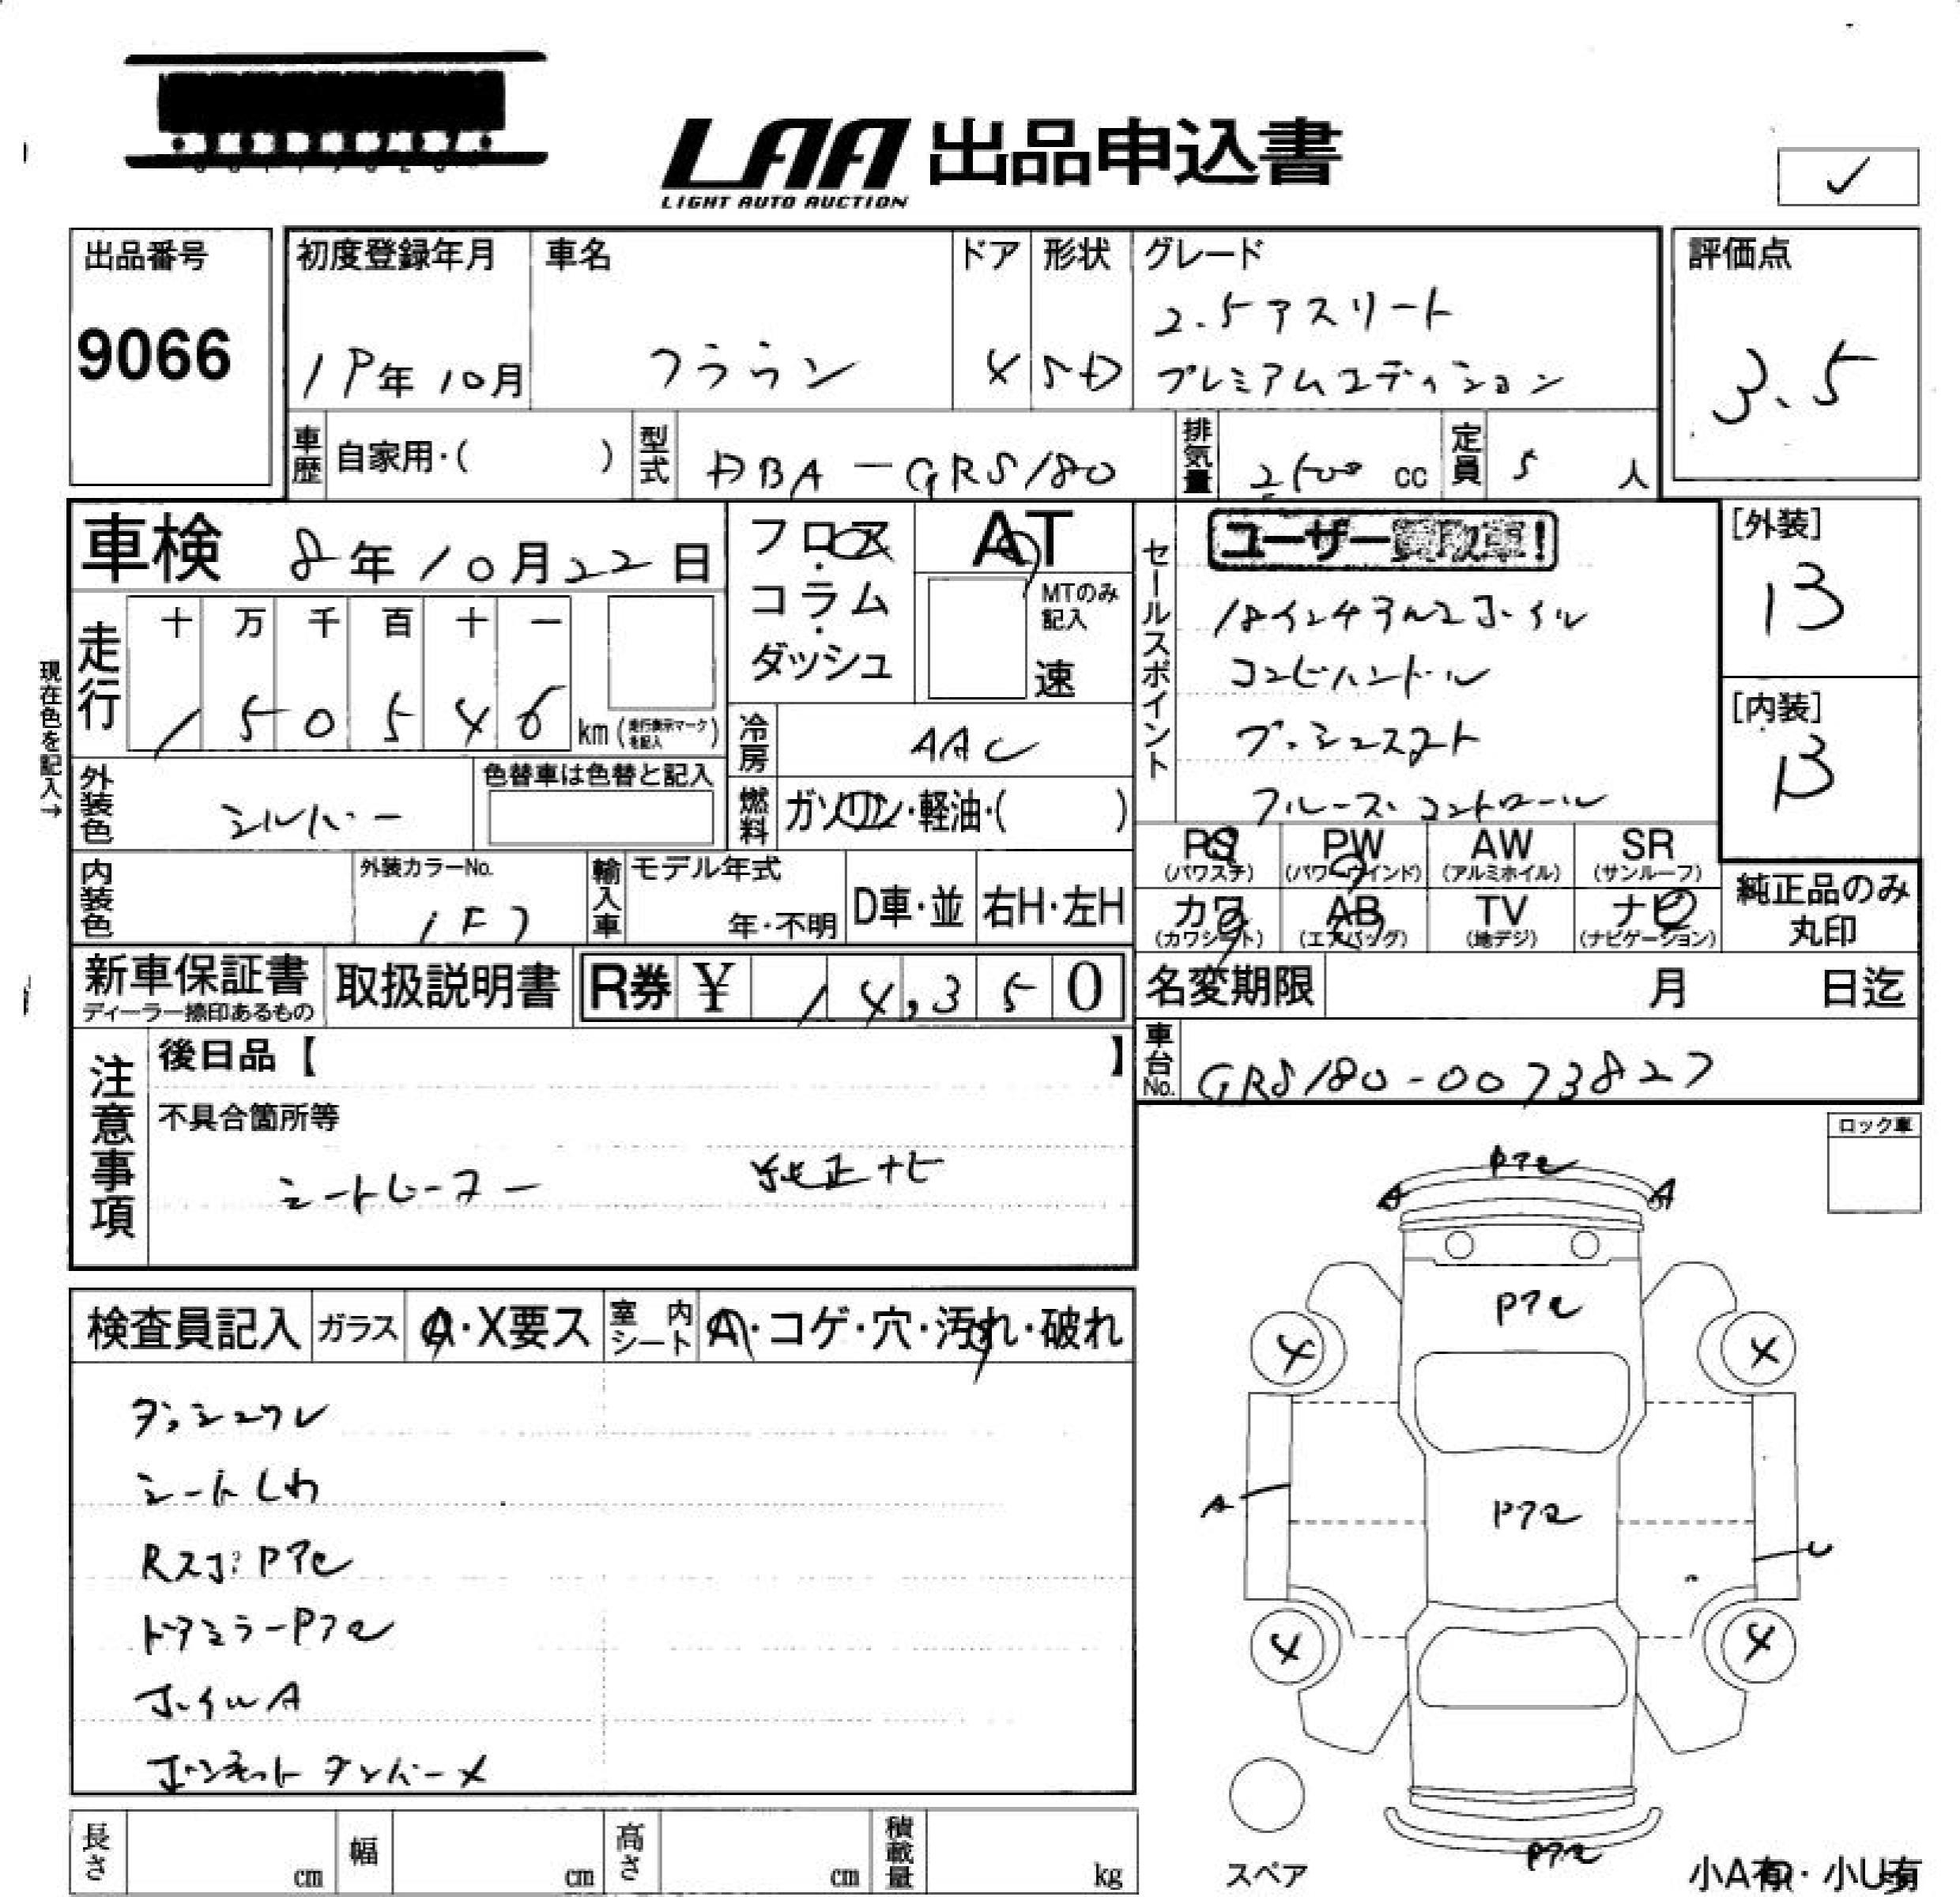 LAA 出品申込書
LIGHT AUTO AUCTION
✓
出品番号
9066
初度登録年月
19年10月
車名
クラウン
ドア
4
形状
SD
グレード
2.5アスリート
プレミアムエディション
評価点
3.5
車歴 自家用・( )
型式 DBA-GRS180
排気量 2500 cc
定員 5 人
車検 8年10月22日
フロア・コラム・ダッシュ
AT
MTのみ記入
速
セールスポイント
ユーザー買取車!
18インチアルミホイル
コンビハンドル
プッシュスタート
クルーズコントロール
[外装]
B
[内装]
B
現在色を記入→
走行
十 万 千 百 十 一
1 5 0 5 4 6 km (走行表示マークを記入)
冷房 AAC
外装色 シルバー
色替車は色替と記入
燃料 ガソリン・軽油・( )
PS (パワステ)
PW (パワーウインド)
AW (アルミホイル)
SR (サンルーフ)
カワ (カワシート)
AB (エアバッグ)
TV (地デジ)
ナビ (ナビゲーション)
純正品のみ丸印
内装色
外装カラーNo.
1F7
輸入車
モデル年式
年・不明
D車・並
右H・左H
新車保証書
ディーラー捺印あるもの
取扱説明書
R券 ¥ 14,350
名変期限 月 日迄
車台No. GRS180-0073827
注意事項
後日品【 】
不具合箇所等
シートレザー 純正ナビ
ロック車
検査員記入
ガラス A・X要ス
室内シート A・コゲ・穴・汚れ・破れ
ダッシュワレ
シートしわ
ドアミラーP
ホイルA
A A
4 4
A U
4 4
スペア
小A有・小U有
長さ cm
幅 cm
高さ cm
積載量 kg